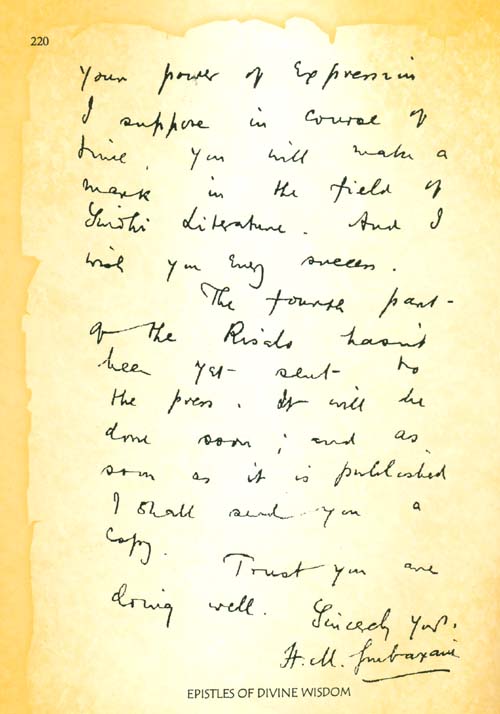 220
Your power of Expression
I suppose in course of
time, you will make a
mark in the field of
Sindhi Literature. And I
wish you every success.
The fourth part
of the Risalo hasn't
been yet sent to
the press. It will be
done soon; and as
soon as it is published
I shall send you a
copy.
Trust you are
doing well.
Sincerely Yrs.
H. M. Gurbaxani
EPISTLES OF DIVINE WISDOM